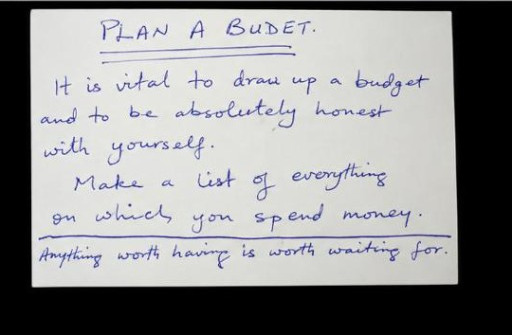 PLAN A BUDET.
It is vital to draw up a budget
and to be absolutely honest
with yourself.
Make a list of everything
on which you spend money.
Anything worth having is worth waiting for.